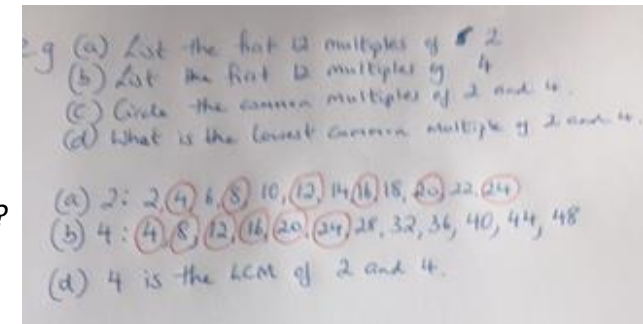 eg (a) List the first 12 multiples of 2
(b) List the first 12 multiples of 4
(c) Circle the common multiples of 2 and 4.
(d) What is the lowest common multiple of 2 and 4.
?
(a) 2: 2, 4, 6, 8, 10, 12, 14, 16, 18, 20, 22, 24
(b) 4: 4, 8, 12, 16, 20, 24, 28, 32, 36, 40, 44, 48
(d) 4 is the LCM of 2 and 4.